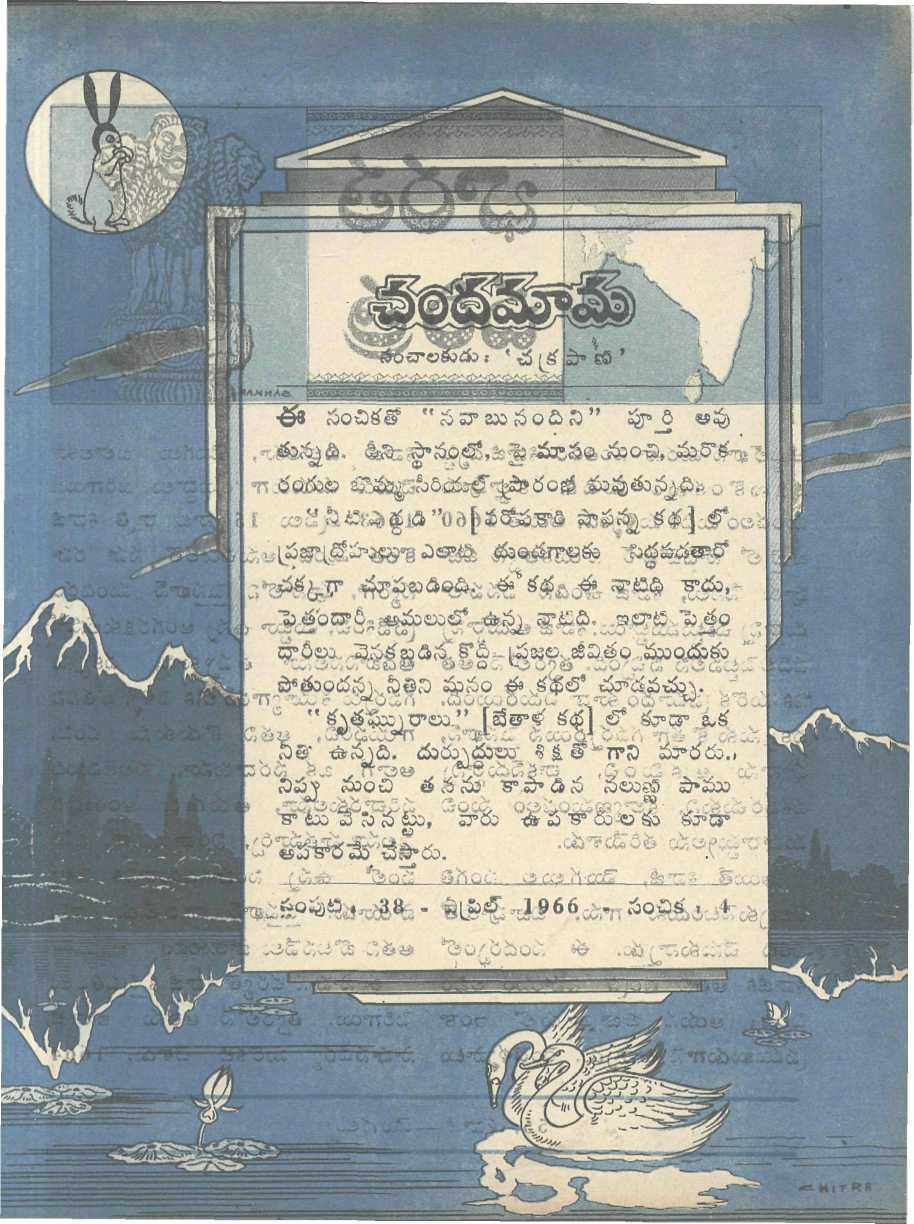 చందమామ
సంచాలకుడు : ' చక్రపాణి '
ఈ సంచికతో “నవాబునందిని” పూర్తి అవు
తున్నది. దీని స్థానంలో, పై మాసం నుంచి, మరొక
రంగుల బొమ్మ సీరియల్ ప్రారంభ మవుతున్నది.
[పరోపకారి పాపన్న కథ] లో
ప్రజాద్రోహులు ఎలాటి దుండగాలకు సిద్ధపడతారో
చక్కగా చూపబడింది. ఈ కథ ఈ నాటిది కాదు,
పెత్తందారీ అమలులో ఉన్న నాటిది. ఇలాటి పెత్తం
దారీలు వెనకబడిన కొద్దీ ప్రజల జీవితం ముందుకు
పోతుందన్న నీతిని మనం ఈ కథలో చూడవచ్చు.
“కృతఘ్నురాలు” [బేతాళ కథ] లో కూడా ఒక
నీతి ఉన్నది. దుర్బుద్ధులు శిక్షతో గాని మారరు.,
నిప్పు నుంచి తనను కాపాడిన నలుణ్ణి పాము
కాటు వేసినట్టు, వారు ఉపకారులకు కూడా
అపకారమే చేస్తారు.
సంపుటి : 38 - ఏప్రిల్ 1966 - సంచిక : 4
CHITRA